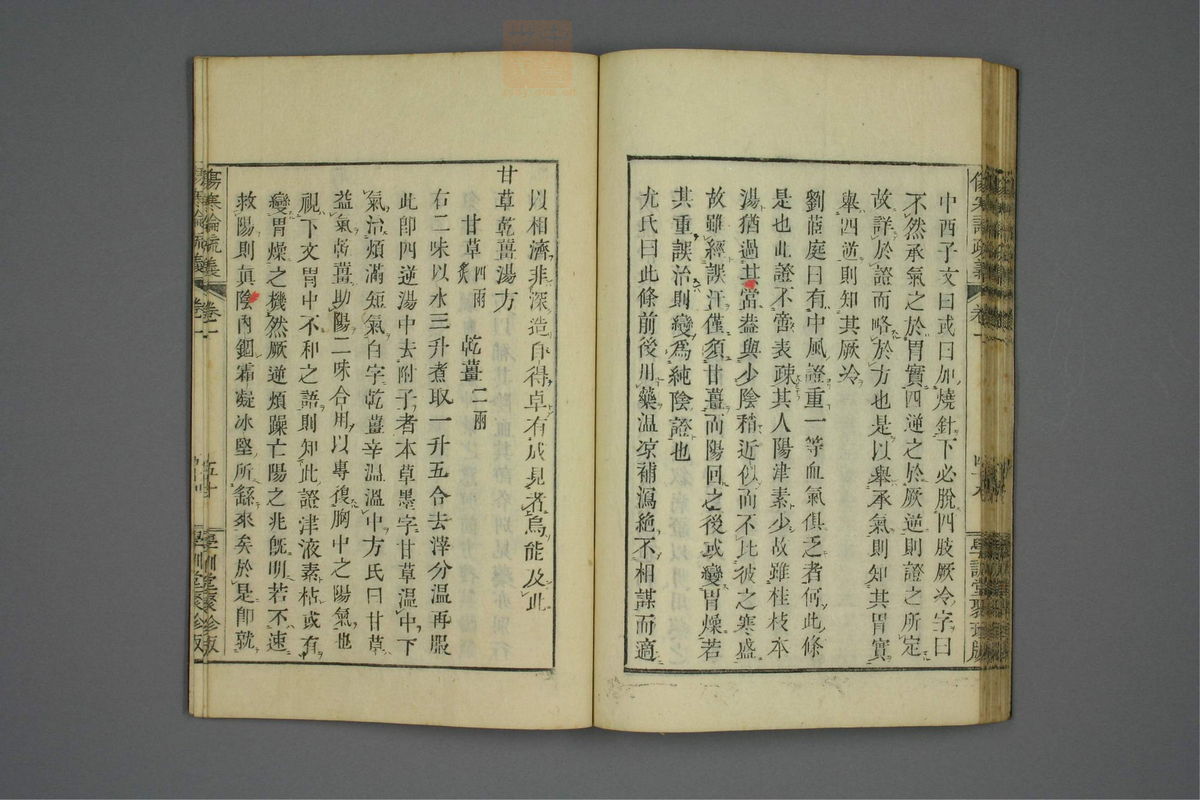 中西子文曰或曰加燒針下必脫四肢厥冷字曰
不然承氣之於胃實四逆之於厥逆則證之所定
故詳於證而略於方也是以舉承氣則知其胃實
舉四逆則知其厥冷
劉茝庭曰有中風證重一等血氣俱乏者何此條
是也此證不啻表疎其人陽津素少故雖桂枝本
湯猶過其當蓋與少陰稍近似而不比彼之寒盛
故雖經誤汗僅須甘薑而陽回之後或變胃燥若
其重誤治則變爲純陰證也
尤氏曰此條前後用藥温凉補瀉絶不相謀而適
以相濟非深造自得卓有成見者烏能及此
甘草乾薑湯方
甘草四兩炙 乾薑二兩
右二味以水三升煮取一升五合去滓分温再服
此卽四逆湯中去附子者本草墨字甘草温中下
氣治煩滿短氣白字乾薑辛温温中方氏曰甘草
益氣乾薑助陽二味合用以專復胸中之陽氣也
視下文胃中不和之語則知此證津液素枯或有
變胃燥之機然厥逆煩躁亡陽之兆旣明若不速
救陽則眞陰內錮霜凝冰堅所繇來矣於是卽就
傷寒論疏義
卷二
五十
學訓堂聚珍版